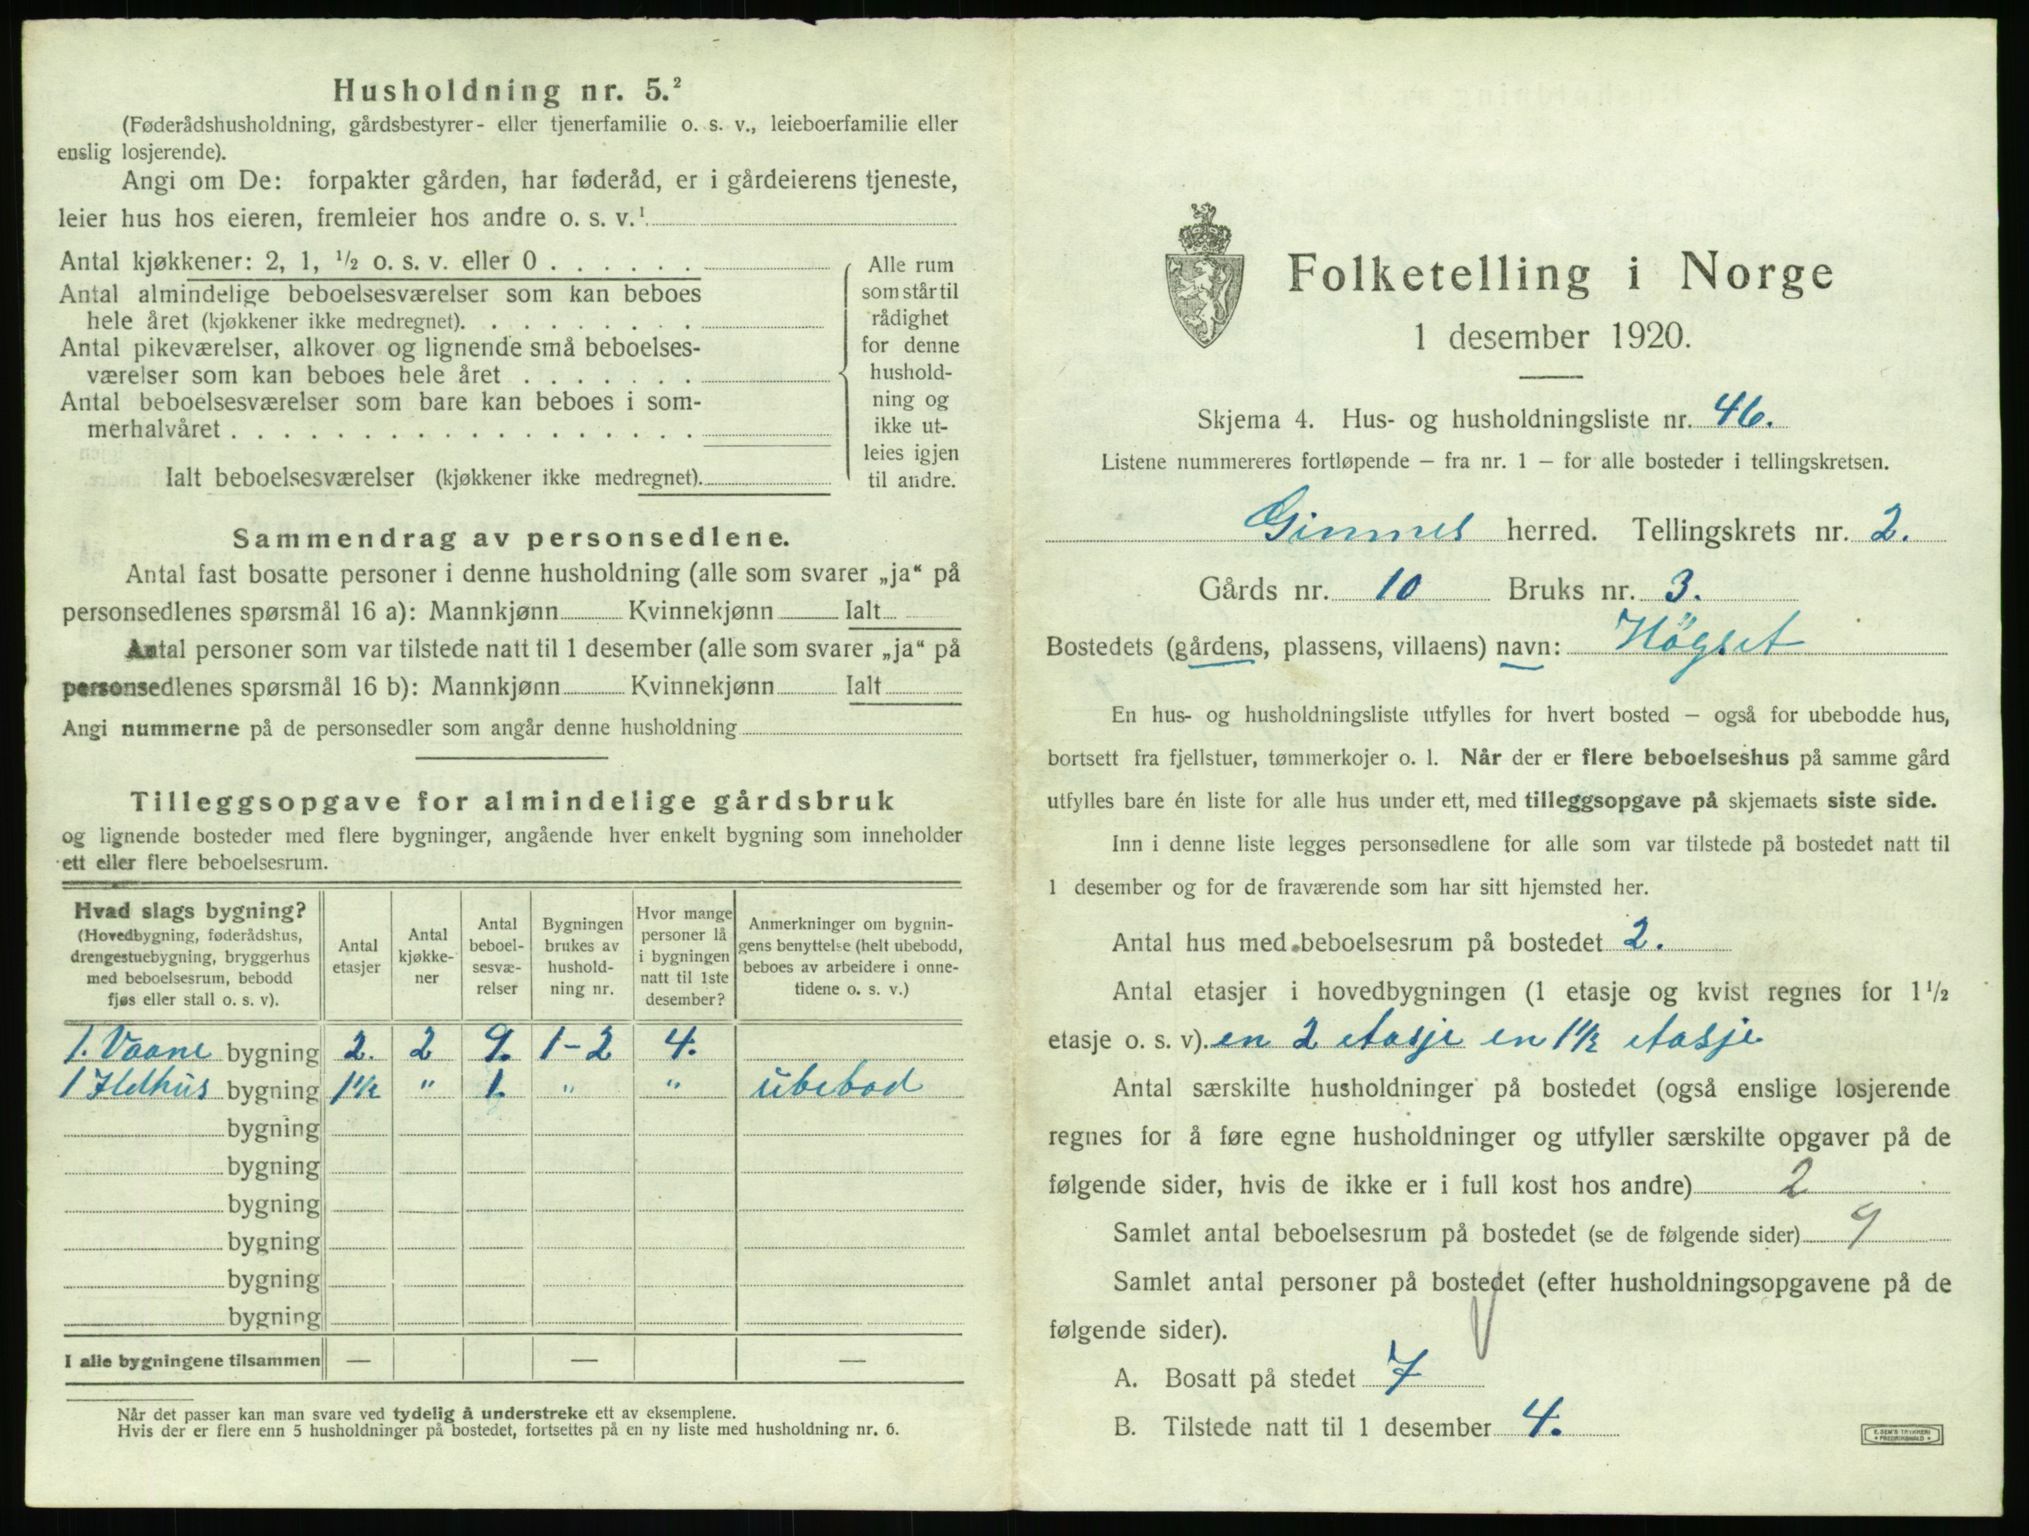 Husholdning nr. 5.²
(Føderådshusholdning, gårdsbestyrer- eller tjenerfamilie o. s. v., leieboerfamilie eller
enslig losjerende).
Angi om De: forpakter gården, har føderåd, er i gårdeierens tjeneste,
leier hus hos eieren, fremleier hos andre o. s. v.¹
Antal kjøkkener: 2, 1, ½ o. s. v. eller 0 . . . . . .
Antal almindelige beboelsesværelser som kan beboes
hele året (kjøkkener ikke medregnet). . . . . . . . .
Antal pikeværelser, alkover og lignende små beboelses-
værelser som kan beboes hele året . . . . . . .
Antal beboelsesværelser som bare kan beboes i som-
merhalvåret . . . . . . . . . . . . . . . . .
Ialt beboelsesværelser (kjøkkener ikke medregnet).
Alle rum
som står til
rådighet
for denne
hushold-
ning og
ikke ut-
leies igjen
til andre.
Sammendrag av personsedlene.
Antal fast bosatte personer i denne husholdning (alle som svarer „ja“ på
personsedlenes spørsmål 16 a): Mannkjønn Kvinnekjønn Ialt
Antal personer som var tilstede natt til 1 desember (alle som svarer „ja“ på
personsedlenes spørsmål 16 b): Mannkjønn Kvinnekjønn Ialt
Angi nummerne på de personsedler som angår denne husholdning
Tilleggsopgave for almindelige gårdsbruk
og lignende bosteder med flere bygninger, angående hver enkelt bygning som inneholder
ett eller flere beboelsesrum.
Hvad slags bygning?
(Hovedbygning, føderådshus,
drengestuebygning, bryggerhus
med beboelsesrum, bebodd
fjøs eller stall o. s. v).
Antal
etasjer
Antal
kjøkke-
ner
Antal
beboel-
sesvæ-
relser
Bygningen
brukes av
hushold-
ning nr.
Hvor mange
personer lå
i bygningen
natt til 1ste
desember?
Anmerkninger om bygnin-
gens benyttelse (helt ubebodd,
beboes av arbeidere i onne-
tidene o. s. v.)
1. Vaane bygning 2. 2 9. 1-2 4.
1 Ildhus bygning 1½ " 1. " " ubebod
bygning
bygning
bygning
bygning
bygning
bygning
I alle bygningene tilsammen — — —
Når det passer kan man svare ved tydelig å understreke ett av eksemplene.
Hvis der er flere enn 5 husholdninger på bostedet, fortsettes på en ny liste med husholdning nr. 6.
Folketelling i Norge
1 desember 1920.
Skjema 4. Hus- og husholdningsliste nr. 46.
Listene nummereres fortløpende – fra nr. 1 – for alle bosteder i tellingskretsen.
Gimnes herred. Tellingskrets nr. 2.
Gårds nr. 10 Bruks nr. 3.
Bostedets (gårdens, plassens, villaens) navn: Högset
En hus- og husholdningsliste utfylles for hvert bosted – også for ubebodde hus,
bortsett fra fjellstuer, tømmerkojer o. l. Når der er flere beboelseshus på samme gård
utfylles bare én liste for alle hus under ett, med tilleggsopgave på skjemaets siste side.
Inn i denne liste legges personsedlene for alle som var tilstede på bostedet natt til
1 desember og for de fraværende som har sitt hjemsted her.
Antal hus med beboelsesrum på bostedet 2.
Antal etasjer i hovedbygningen (1 etasje og kvist regnes for 1½
etasje o. s. v). en 2 etasje en 1½ etasje
Antal særskilte husholdninger på bostedet (også enslige losjerende
regnes for å føre egne husholdninger og utfyller særskilte opgaver på de
følgende sider, hvis de ikke er i full kost hos andre) 2
Samlet antal beboelsesrum på bostedet (se de følgende sider) 9
Samlet antal personer på bostedet (efter husholdningsopgavene på de
følgende sider).
A. Bosatt på stedet 7
B. Tilstede natt til 1 desember 4.
E. SEM'S TRYKKERI
FREDRIKSHALD